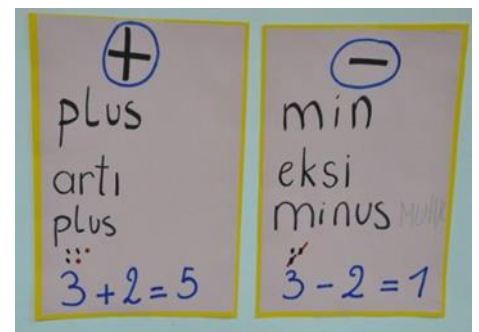 +
plus
artı
plus
3 + 2 = 5
−
min
eksi
minus
3 − 2 = 1